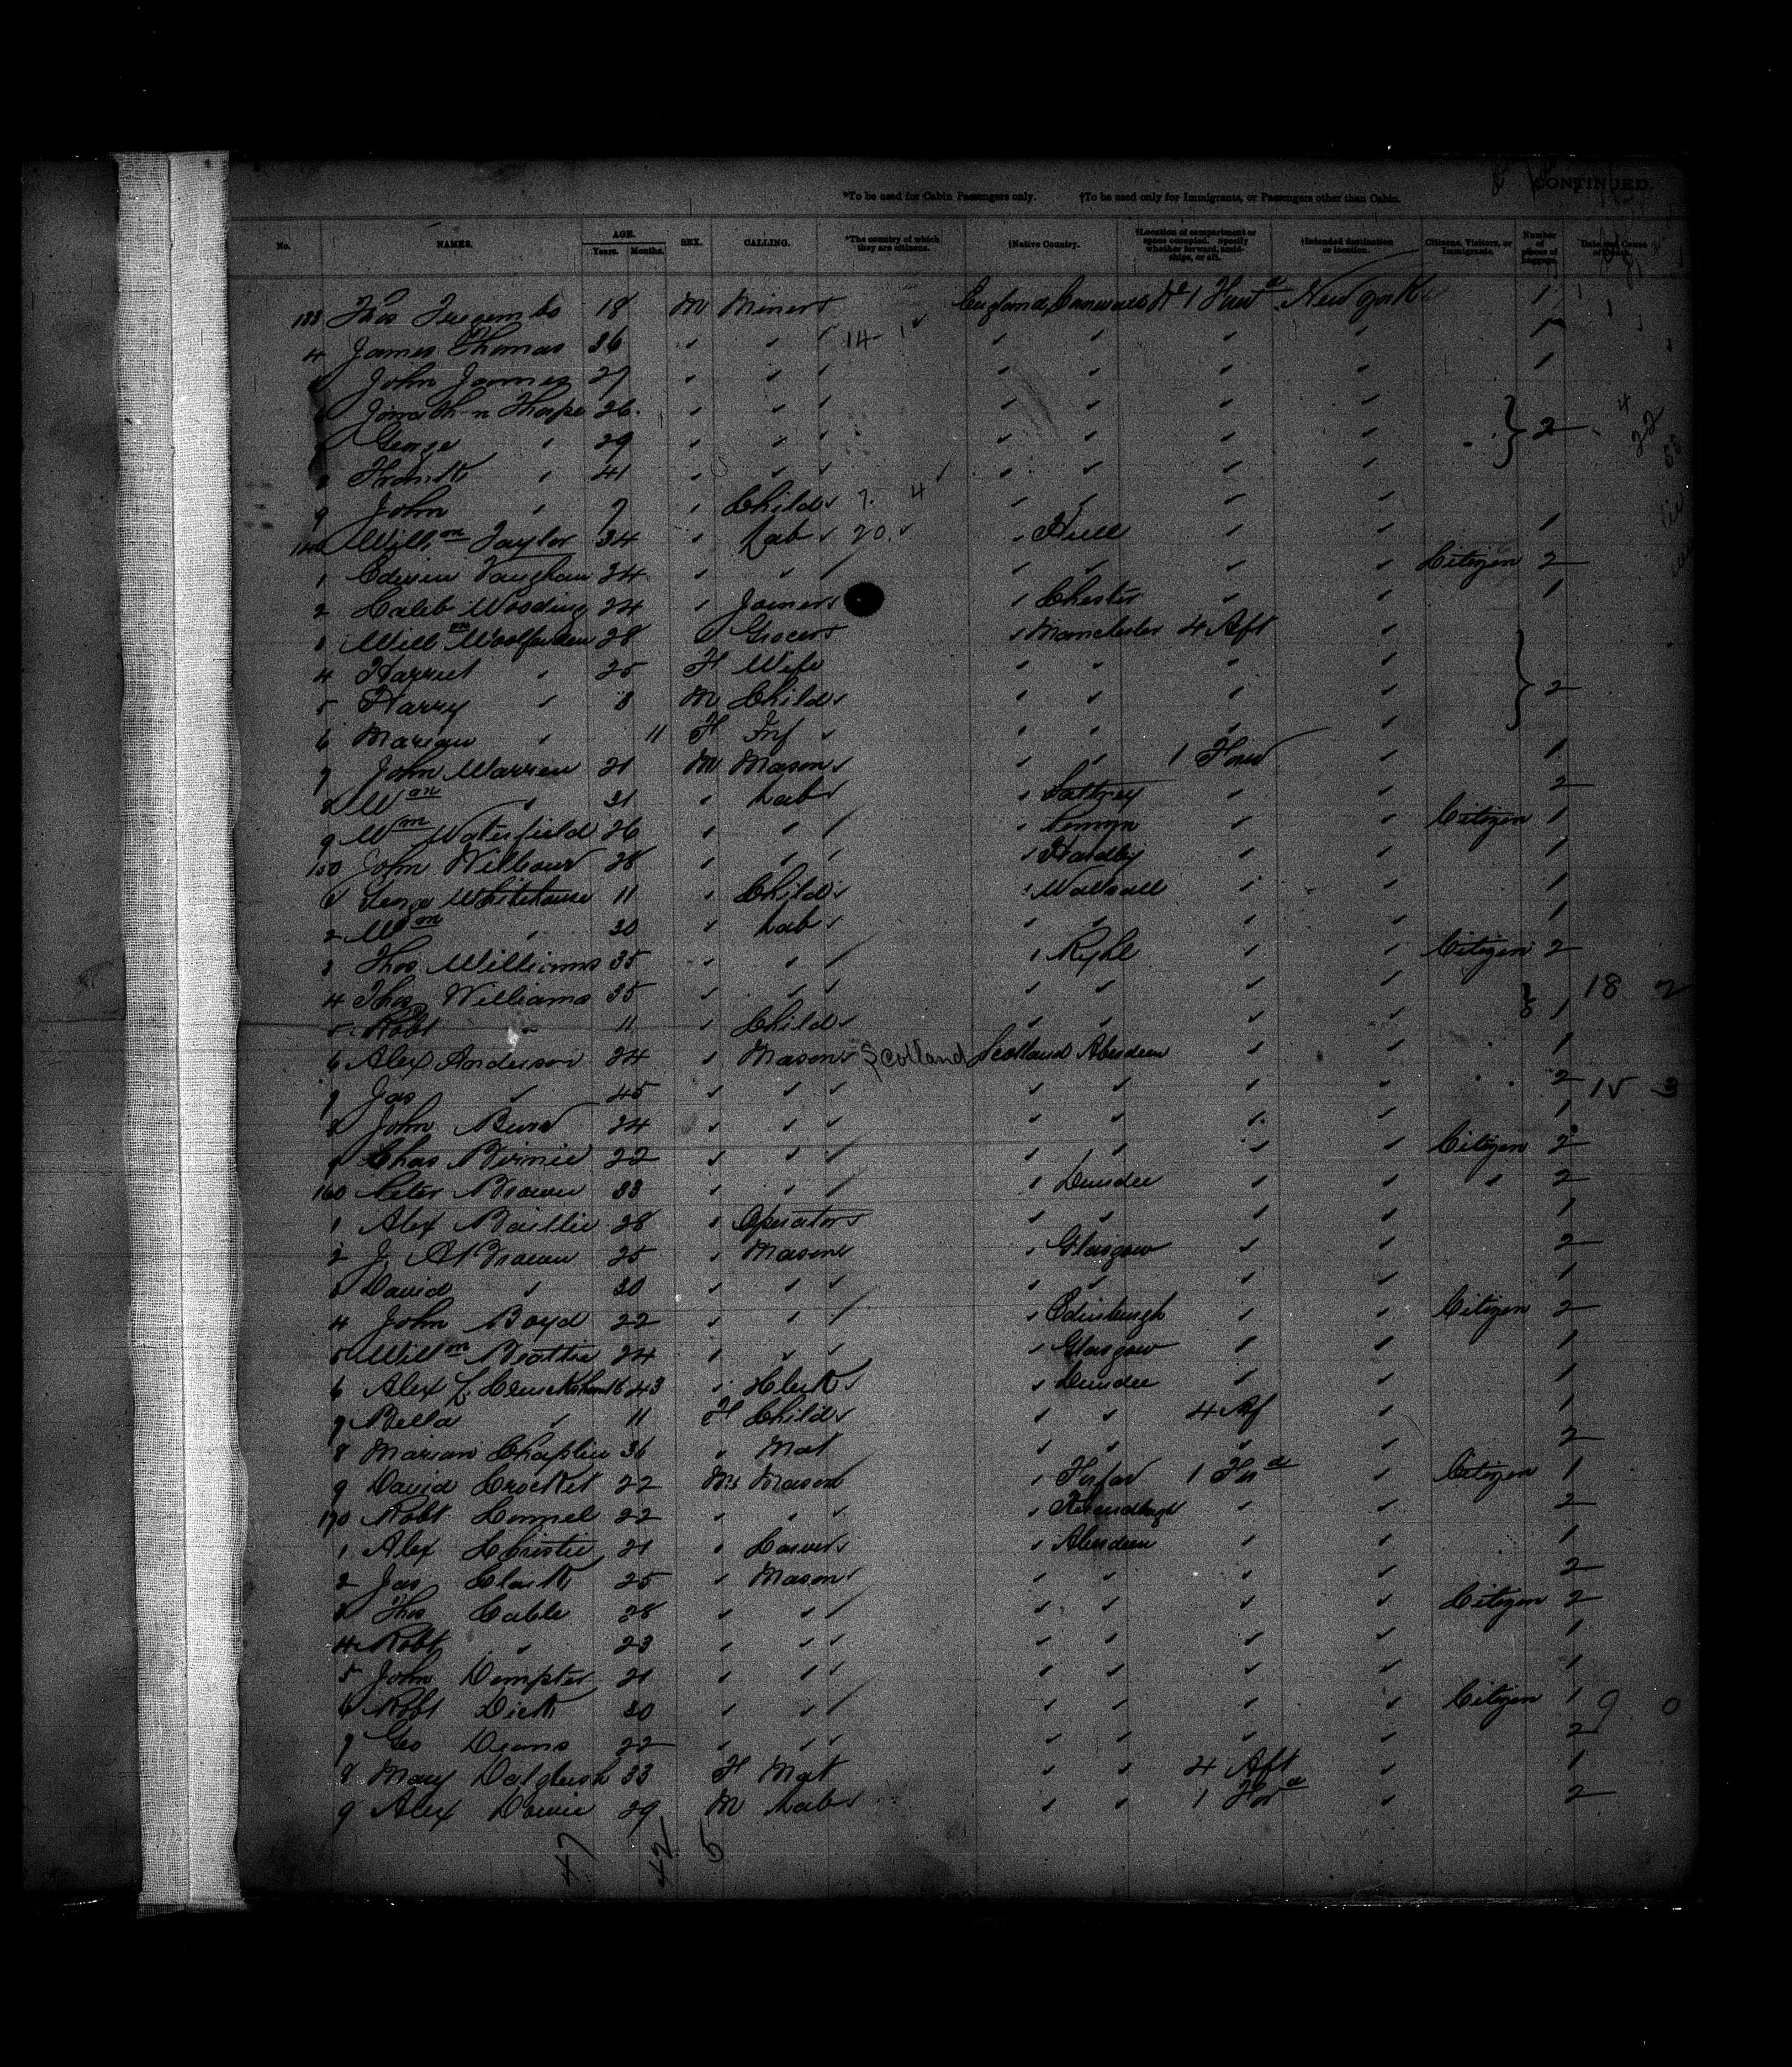 CONTINUED.
*To be used for Cabin Passengers only. †To be used only for Immigrants, or Passengers other than Cabin.
No. NAMES. AGE. Years. Months. SEX. CALLING. *The country of which they are citizens. †Native Country. †Location of compartment or space occupied. Specify whether forward, amidships, or aft. †Intended destination or location. Citizens, Visitors, or Immigrants. Number of pieces of baggage. Date and Cause of Death.
133 Thos 18 M Miner England, Cornwall No 1 New York 1
4 James Thomas 36 " " 14 - 1 " " " " 1
John James 27 " " " " " " 1
Jonathan Thorpe 26 " " " " " "
George " 29 " " " " " " } 2 4 22
8 Frank " 41 " " " " " "
9 John " 7 " Child 7. 4 " " " "
140 Willm Taylor 34 " Lab 20. " Hull " " 1
1 Edwin Vaughan 24 " " " " " " Citizen 2
2 Caleb Wooding 24 " Joiner " Chester " " 1
3 Willm 28 " Grocer " Manchester 4 Aft "
4 Harriet " 25 F Wife " " " "
5 Harry " 8 M Child " " " " } 2
6 Marian " 11 F Inf " " " "
7 John Warren 21 M Mason " " 1 Forw " 1
8 Wm " 31 " Lab " " " 2
9 Wm Waterfield 26 " " " " " Citizen 1
150 John 28 " " " " " 1
1 George Whitehouse 11 " Child " Walsall " " 1
2 Wm " 30 " Lab " " " " 1
3 Thos Williams 35 " " " Ryhl " " Citizen 2
4 Thos Williams 35 " " " " " " 18 2
5 Robt " 11 " Child " " " " } 1
6 Alex Anderson 24 " Mason Scotland Scotland Aberdeen " " 1
7 Jas " 45 " " " " " " 2 15 3
8 John 24 " " " " " " 1
9 Chas Birnie 22 " " " " " " Citizen 2
160 Peter Brown 33 " " " Dundee " " " 2
1 Alex Baillie 28 " Operator " " " " 1
2 J. Brown 25 " Mason " Glasgow " " 2
3 David " 30 " " " " " " 1
4 John Boyd 22 " " " Edinburgh " " Citizen 2
5 Willm Beattie 24 " " " Glasgow " " 1
6 Alex L. Cruickshank 43 " Clerk " Dundee " " 1
7 Bella " 11 F Child " " 4 Af " 1
8 Marian Chaplin 36 " Mat " " " " 2
9 David Crocket 22 M Mason " Forfar 1 Ford " Citizen 1
170 Robt 22 " " " " " 2
1 Alex Christie 21 " Carver " Aberdeen " " 1
2 Jas Clark 25 " Mason " " " " 2
3 Thos Cable 28 " " " " " " Citizen 2
4 Robt " 23 " " " " " " 1
5 John Dempster 21 " " " " " " 1
6 Robt Dick 30 " " " " " " Citizen 1 9 0
7 Geo Deans 22 " " " " " " 2
8 Mary Dalgleish 33 F Mat " " 4 Aft " 1
9 Alex 29 M Lab " " 1 Ford " 2
47 42 5